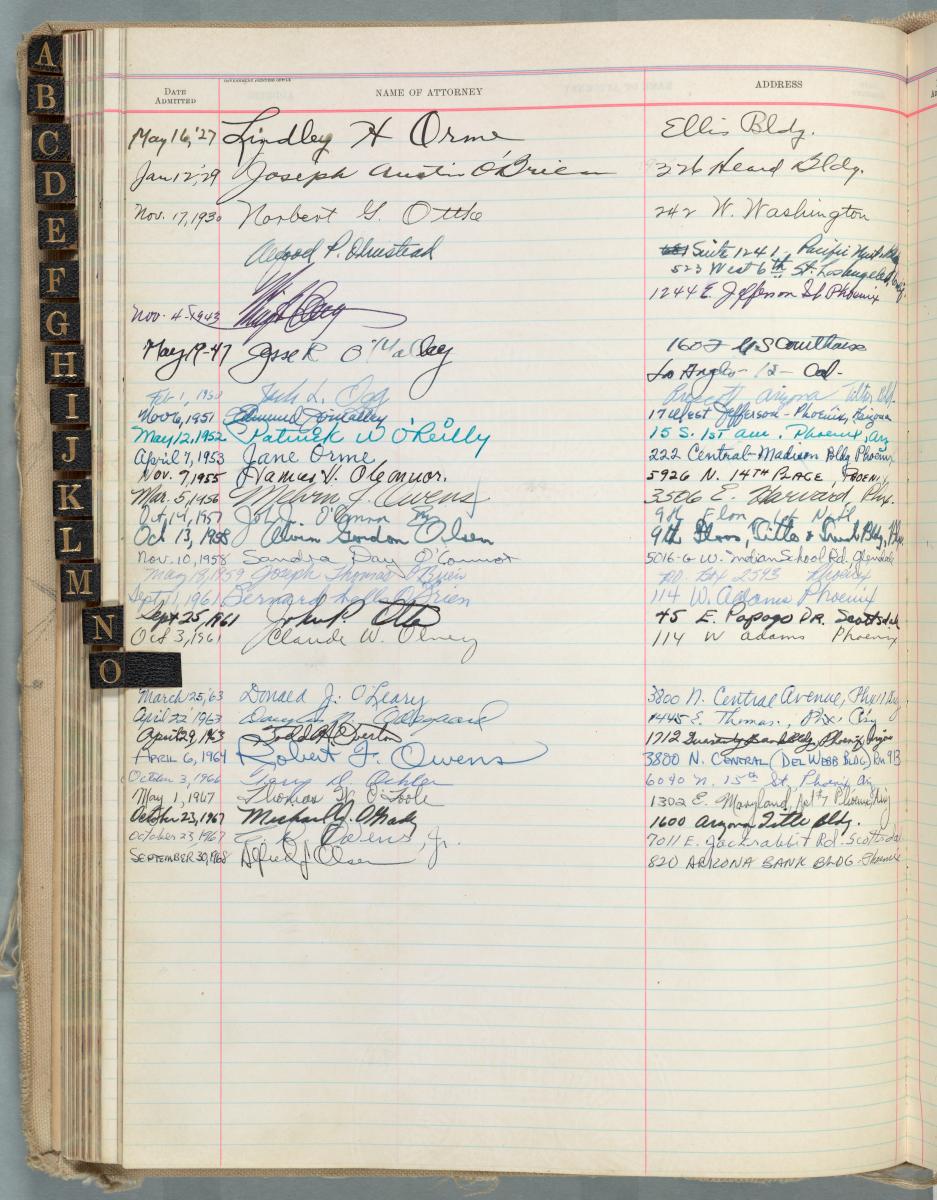 A
B
C
D
E
F
G
H
I
J
K
L
M
N
O
GOVERNMENT PRINTING OFFICE
DATE ADMITTED NAME OF ATTORNEY ADDRESS
May 16,'27 Lindley H Orme Ellis Bldg.
Jan 12,'29 Joseph Austin O'Brien 326 Heard Bldg.
Nov. 17, 1930 Norbert G. Ottke 242 W. Washington
P. Olmstead Suite 1241, Pacific Mutual
523 West 6th St. Los Angeles,
1244 E. Jefferson St Phoenix
Nov. 4-1943
May 19-47 Jesse R O'Malley 1602 US Courthouse
Los Angeles - 12 - Cal-
Feb 1, 1950 L. Ogg Prescott Arizona
Nov 6, 1951 Edmund 17 West Jefferson - Phoenix, Arizona
May 12, 1952 Patrick W O'Reilly 15 S. 1st Ave. Phoenix, Ariz
April 7, 1953 Jane Orme 222 Central-Madison Bldg Phoenix
Nov. 7, 1955 James V. O'Connor. 5926 N. 14TH PLACE, PHOENIX
Mar. 5, 1956 Melvin J. Owens 3506 E. Harvard, Phx.
Oct 14, 1957 John J. O'Connor 9th Floor 1st Natl
Oct 13, 1958 Alvin Gordon Olsen 9th Floor, Title & Trust Bldg, Phx.
Nov. 10, 1958 Sandra Day O'Connor 5016-G W. Indian School Rd, Glendale
May 18, 1959 Joseph Thomas O'Brien P.O. Box 2593 Phoenix
Sept 1, 1961 Bernard Wells O'Brien 114 W. Adams Phoenix
Sept 25, 1961 John P. Otto 45 E. Papago DR. Scottsdale
Oct 3, 1961 Claude W. Olney 114 W Adams Phoenix
March 25, '63 Donald J. O'Leary 3800 N. Central Avenue, Phx
April 22, 1963 Douglas N. Odegaard 1445 E. Thomas., Phx. City
April 29, 1963 Todd H Overton 1712 Bldg, Phoenix, Arizona
APRIL 6, 1964 Robert F. Owens 3800 N. CENTRAL (DEL WEBB BLDG) Rm 913
October 3, 1966 D. 6040 N. 15th St, Phoenix, Az
May 1, 1967 Thomas W. O'Toole 1302 E. Maryland, Apt 7 Phoenix, Ariz
October 23, 1967 Michael J. O'Grady 1600 Arizona Title Bldg.
October 23, 1967 Owens, Jr. 7011 E. Jackrabbit Rd. Scottsdale
SEPTEMBER 30, 1968 Alfred J. Olsen 820 ARIZONA BANK BLDG - Phoenix